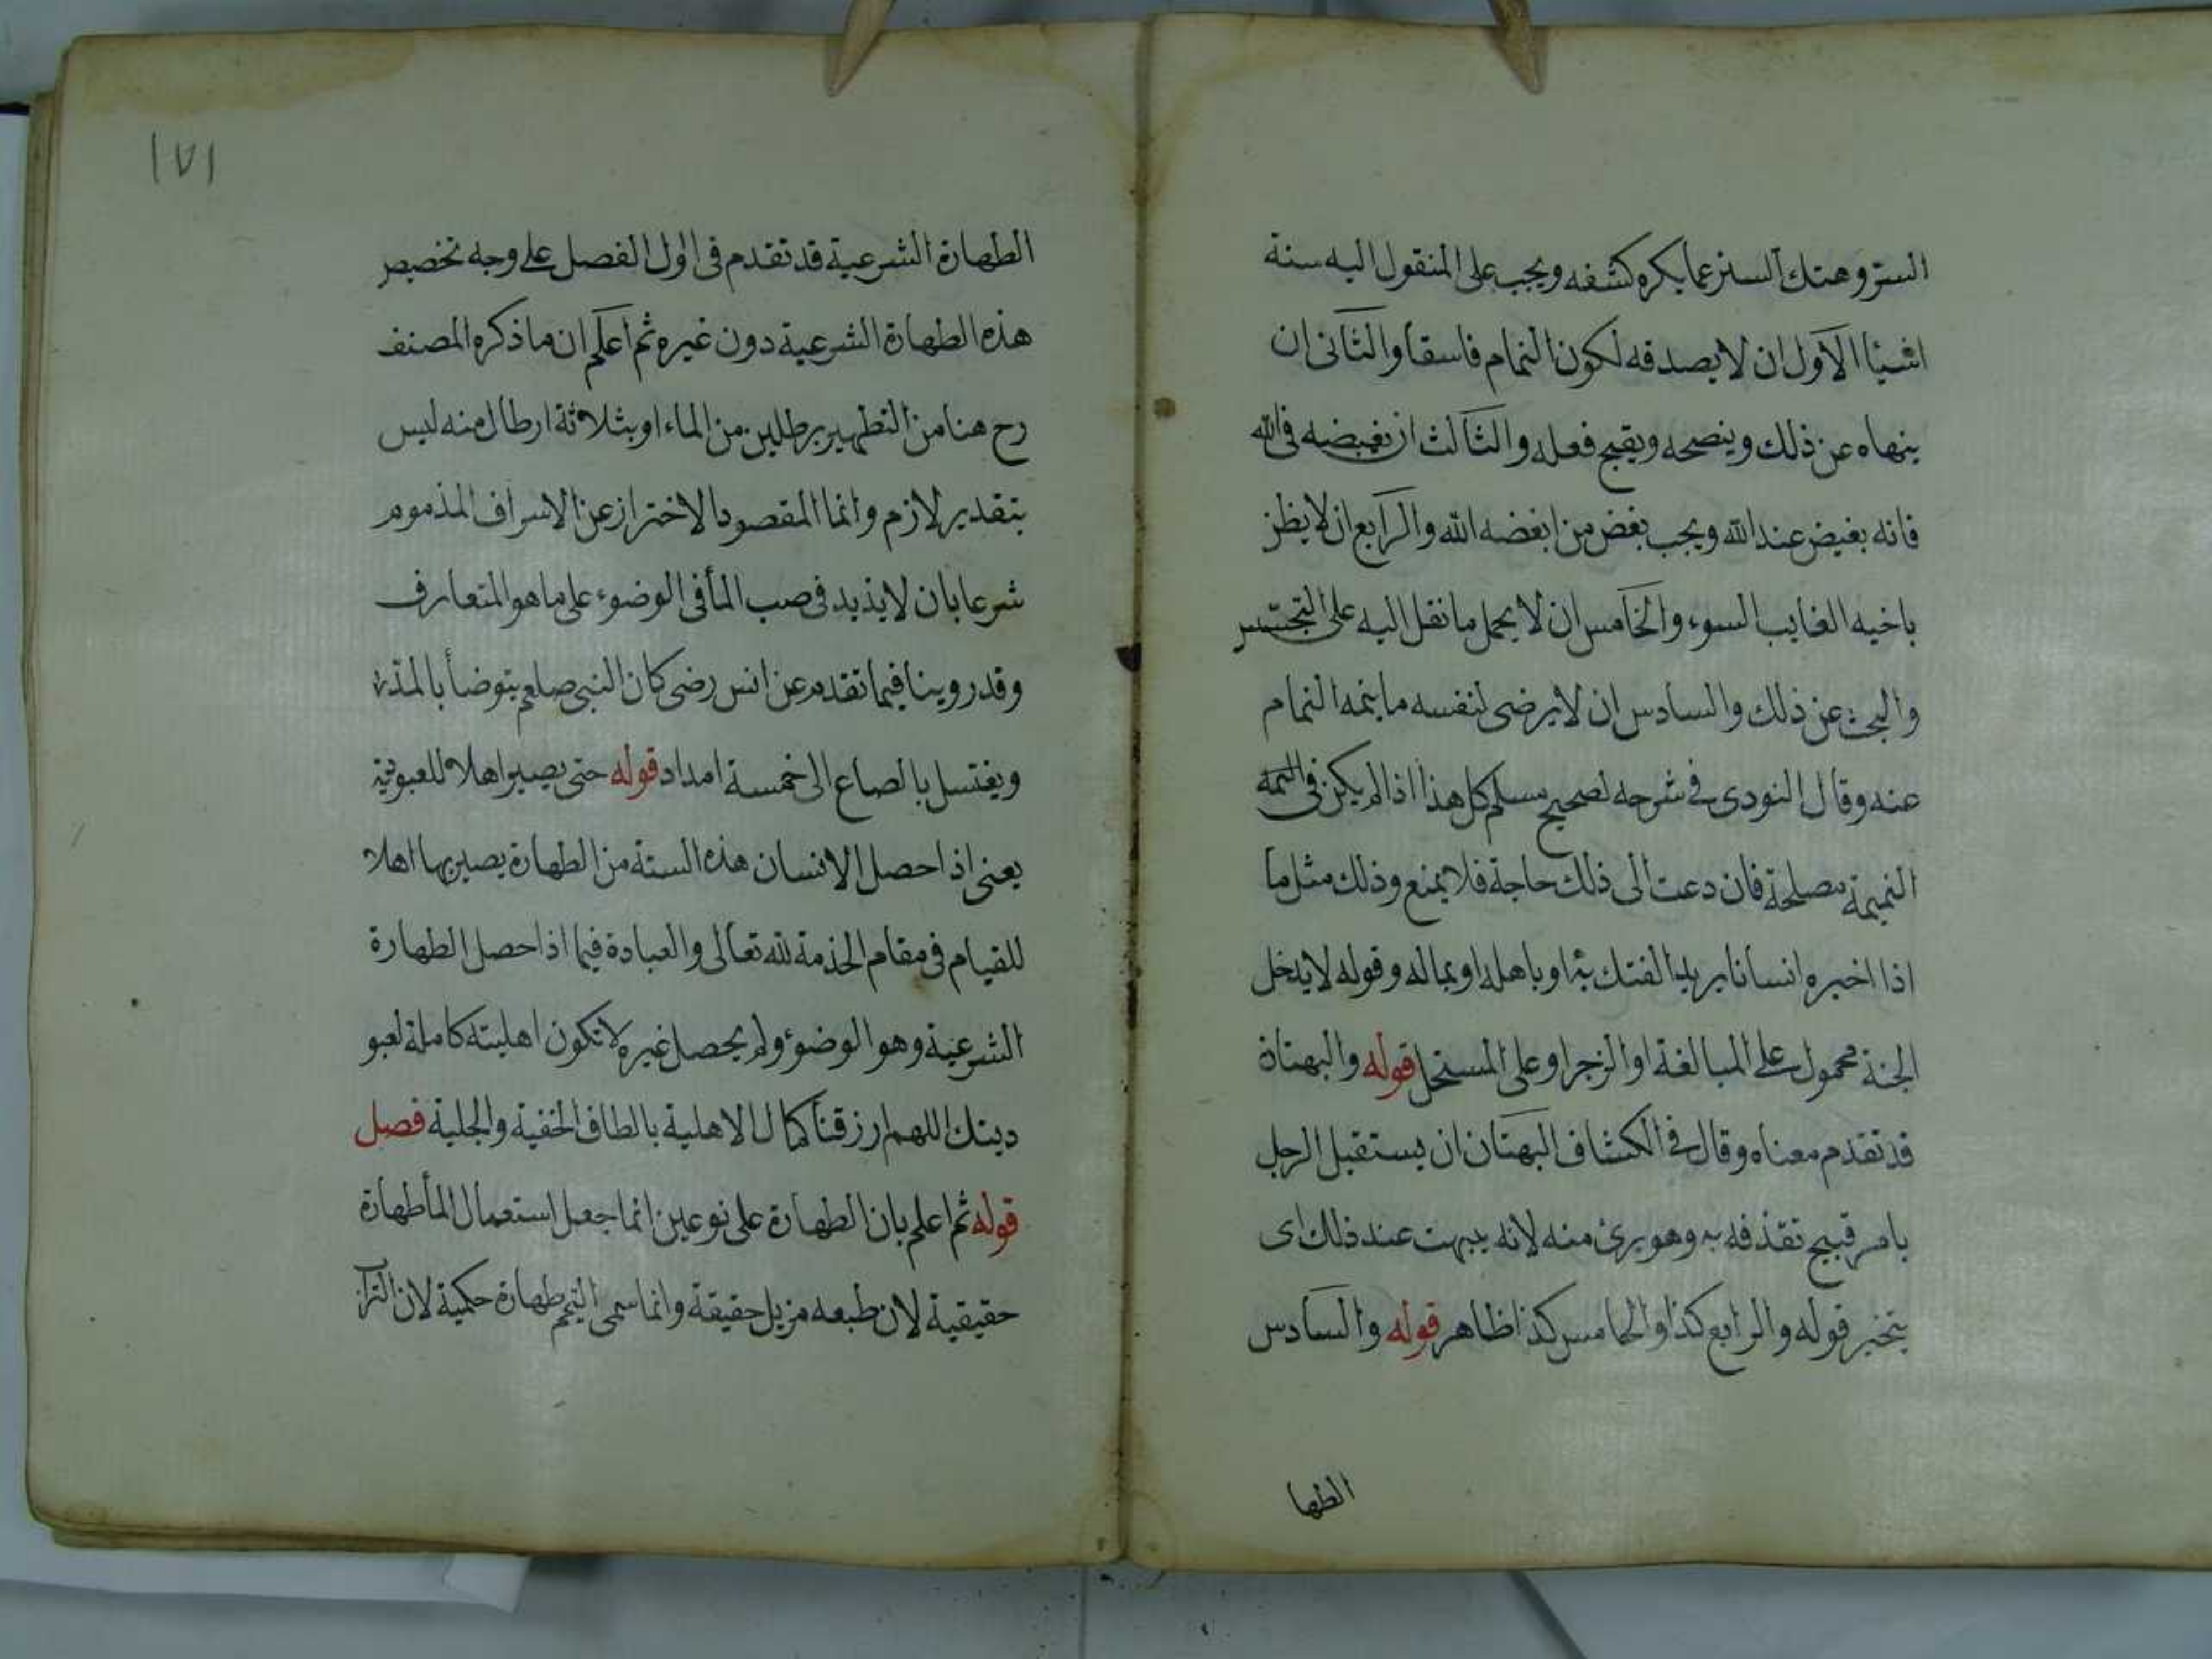 الستر وهتك الستر عما يكره كشفه ويجب على المنقول اليه ستة
اشياا الاول ان لا يصدقه لكون النمام فاسقا والثانى ان
ينهاه عن ذلك وينصحه ويقبح فعله والثالث ان يبغضه فى الله
فانه بغيض عند الله ويجب بغض من ابغضه الله والرابع ان لا يظن
باخيه الغايب السوء والخامس ان لا يحمل ما نقل اليه على التجسس
والبحث عن ذلك والسادس ان لا يرضى لنفسه ما ينمه النمام
عنه وقال النووى فى شرحه لصحيح مسلم كل هذا اذا لم يكن فى
النميمة مصلحة فان دعت الى ذلك حاجة فلا يمنع وذلك مثل ما
اذا اخبره انسانا يريد الفتك به او باهله او بماله وقوله لا يدخل
الجنة محمول على المبالغة او الزجر او على المستحل قوله والبهتان
قد تقدم معناه وقال فى الكشاف البهتان ان يستقبل الرجل
بامر قبيح تقذفه به وهو برئ منه لانه يبهت عند ذلك اى
يتخير قوله والرابع كذا والخامس كذا ظاهر قوله والسادس
الطها
١٧١
الطهارة الشرعية قد تقدم فى اول الفصل على وجه تخصيص
هذه الطهارة الشرعية دون غيره ثم اعلم ان ما ذكره المصنف
رح هنا من التطهير برطلين من الماء او بثلاثة ارطال منه ليس
بتقدير لازم وانما المقصود الاحتراز عن الاسراف المذموم
شرعا بان لا يذيد فى صب المأ فى الوضوء على ما هو المتعارف
وقد روينا فيما تقدم عن انس رضى كان النبى صلعم يتوضأ بالمد
ويغتسل بالصاع الى خمسة امداد قوله حتى يصير اهلا للعبودية
يعنى اذا حصل الانسان هذه الستة من الطهارة يصير بها اهلا
للقيام فى مقام الخذمة لله تعالى والعبادة فيما اذا حصل الطهارة
الشرعية وهو الوضوء ولم يحصل غيره لا تكون اهليته كاملة لعبو
ديتك اللهم ارزقنا كمال الاهلية بالطاف الخفية والجلية فصل
قوله ثم اعلم بان الطهارة على نوعين انما جعل استعمال المأ طهارة
حقيقية لان طبعه مزيل حقيقة وانما سمى التيمم طهارة حكمية لان الترا